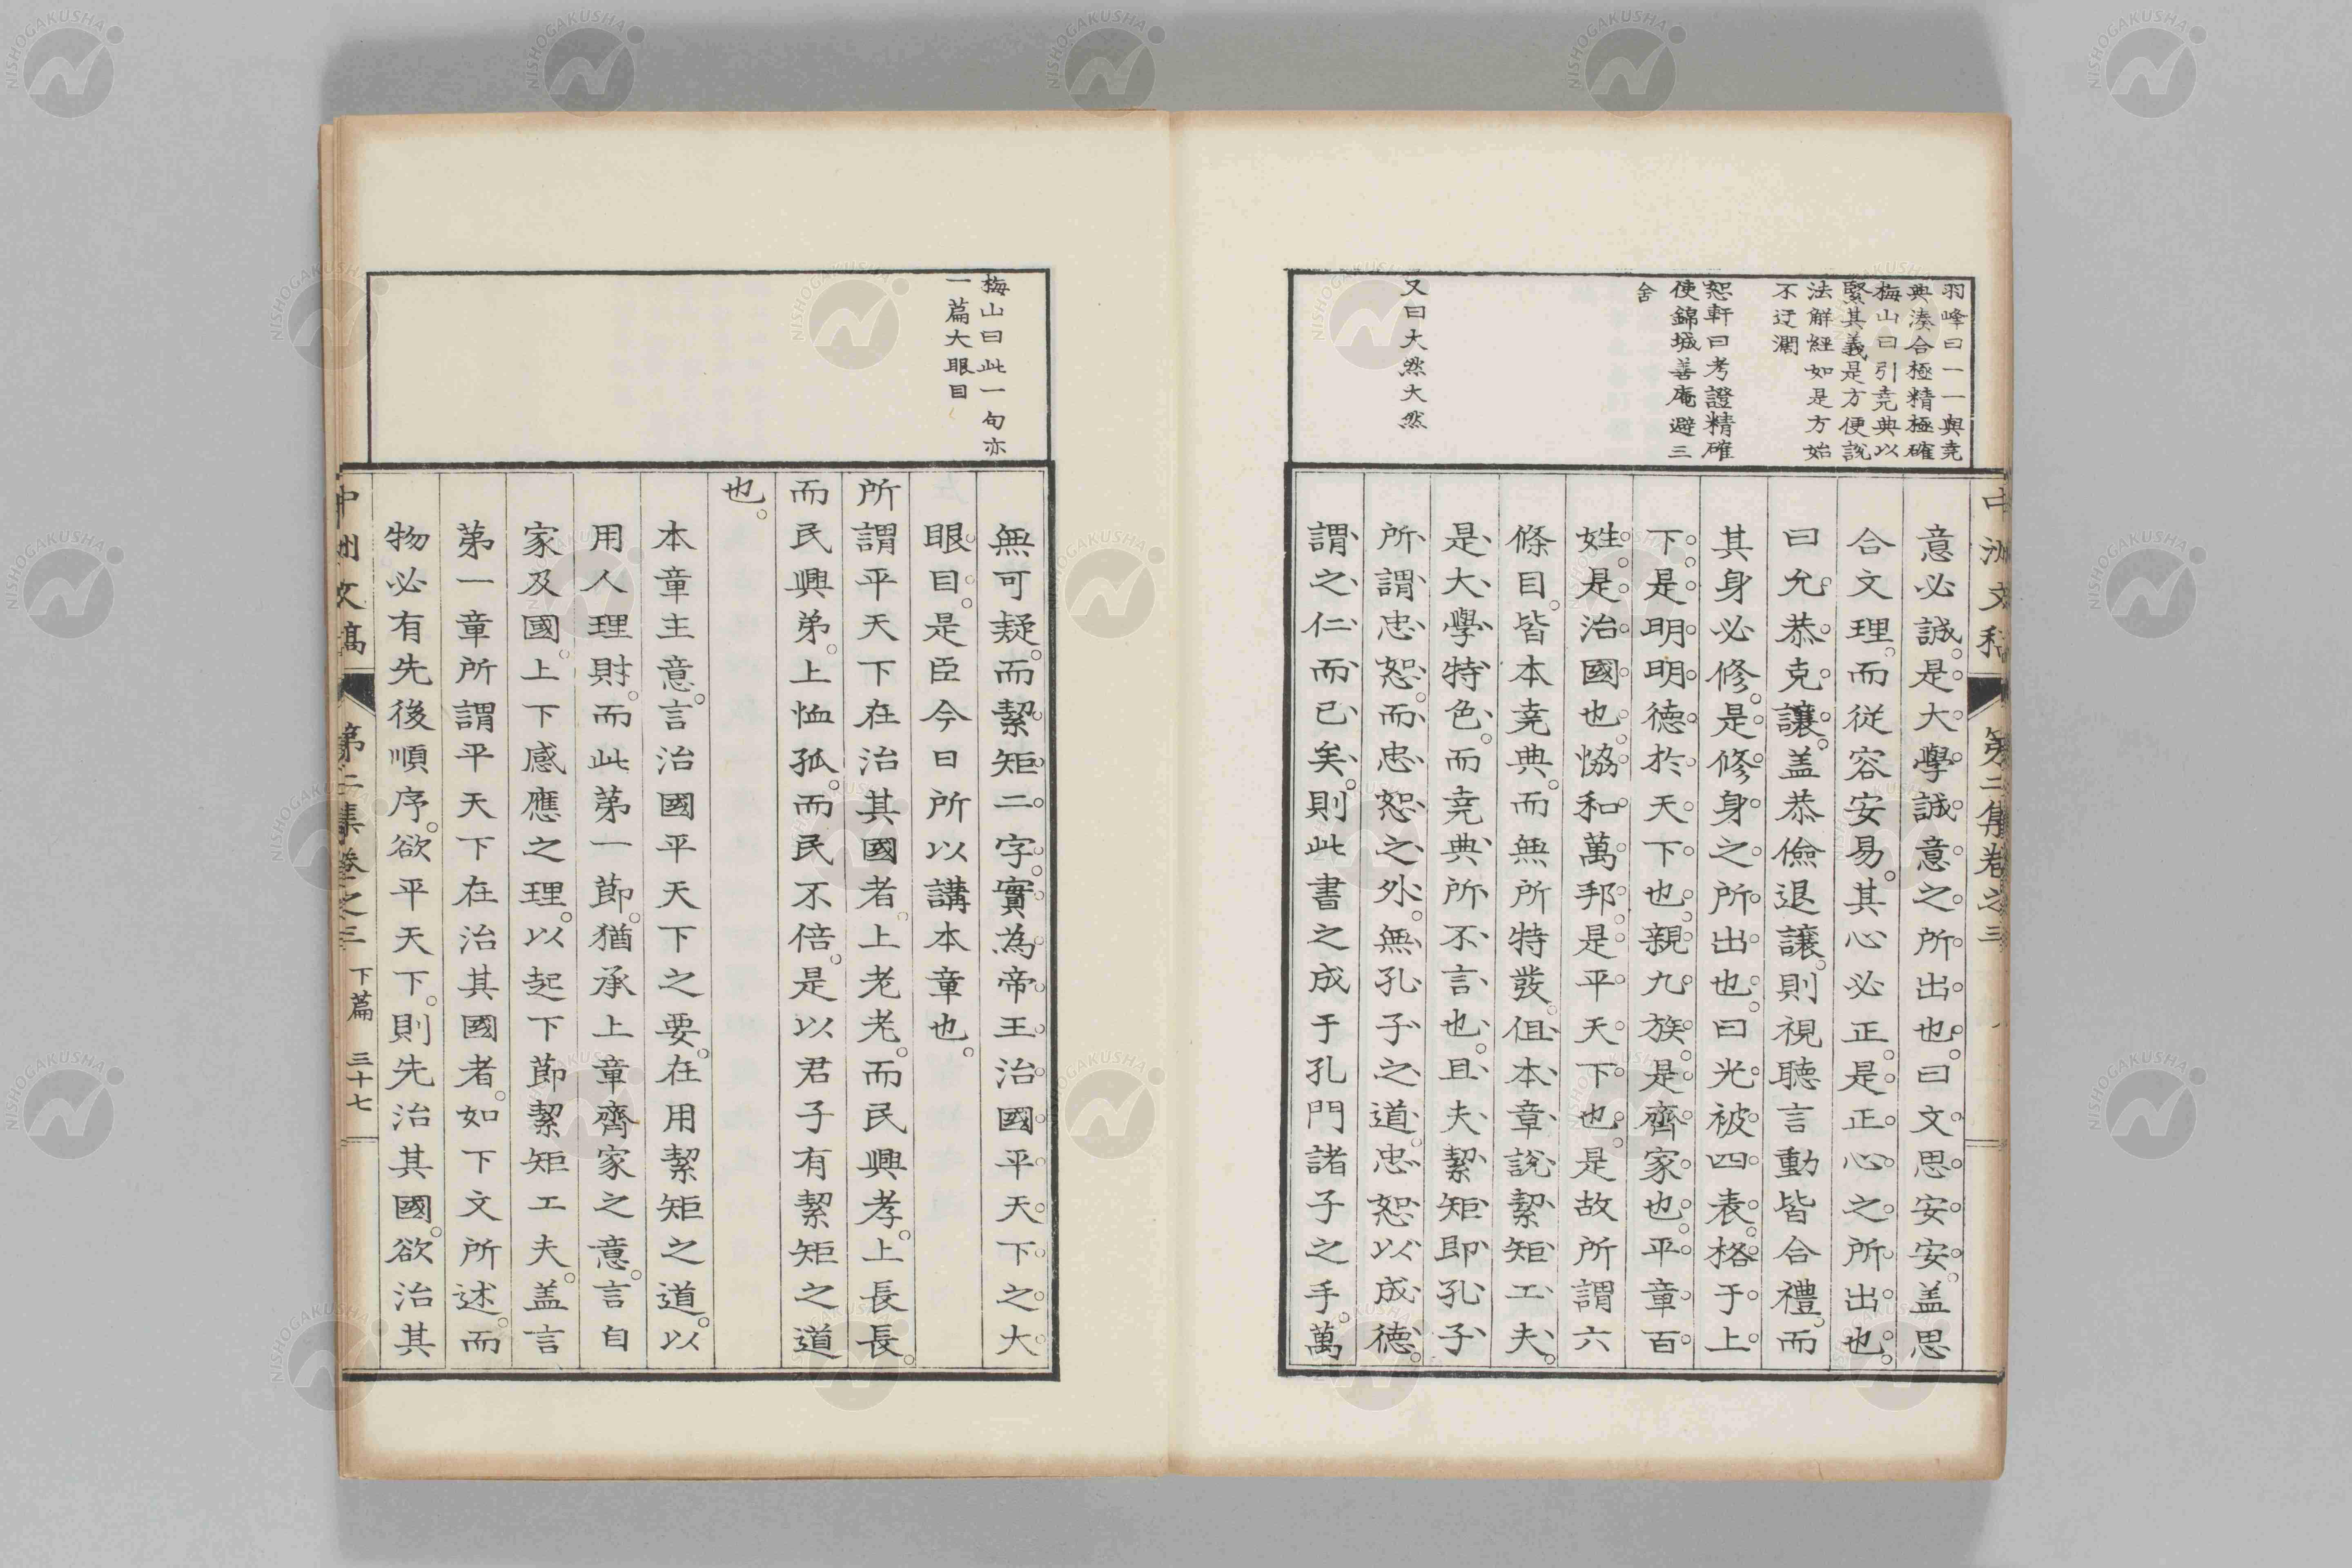 羽峰曰一一與堯
典湊合極精極確
梅山曰引堯典以
緊其義是方便說
法解經如是方始
不迂濶
恕軒曰考證精確
使錦城善庵避三
舍
又曰大然大然
中洲文稿 第二集卷之三
意必誠。是大學誠意之所出也。曰文思安安。盖思
合文理。而從容安易。其心必正。是正心之所出也。
曰允恭克讓。盖恭儉退讓。則視聽言動皆合禮。而
其身必修。是修身之所出也。曰光被四表。格于上
下。是明明德於天下也。親九族。是齊家也。平章百
姓。是治國也。協和萬邦。是平天下也。是故所謂六
條目。皆本堯典。而無所特發。但本章說絜矩工夫。
是大學特色。而堯典所不言也。且夫絜矩即孔子
所謂忠恕。而忠恕之外。無孔子之道。忠恕以成德。
謂之仁而已矣。則此書之成于孔門諸子之手。萬
梅山曰此一句亦
一篇大眼目
無可疑。而絜矩二字。實為帝王治國平天下之大
眼目。是臣今日所以講本章也。
所謂平天下在治其國者。上老老。而民興孝。上長長。
而民興弟。上恤孤。而民不倍。是以君子有絜矩之道
也。
本章主意。言治國平天下之要。在用絜矩之道。以
用人理財。而此苐一節。猶承上章齊家之意。言自
家及國。上下感應之理。以起下節絜矩工夫。盖言
苐一章所謂平天下在治其國者。如下文所述。而
物必有先後順序。欲平天下。則先治其國。欲治其
中洲文稿 第二集卷之三 下篇 三十七
NISHOGAKUSHA